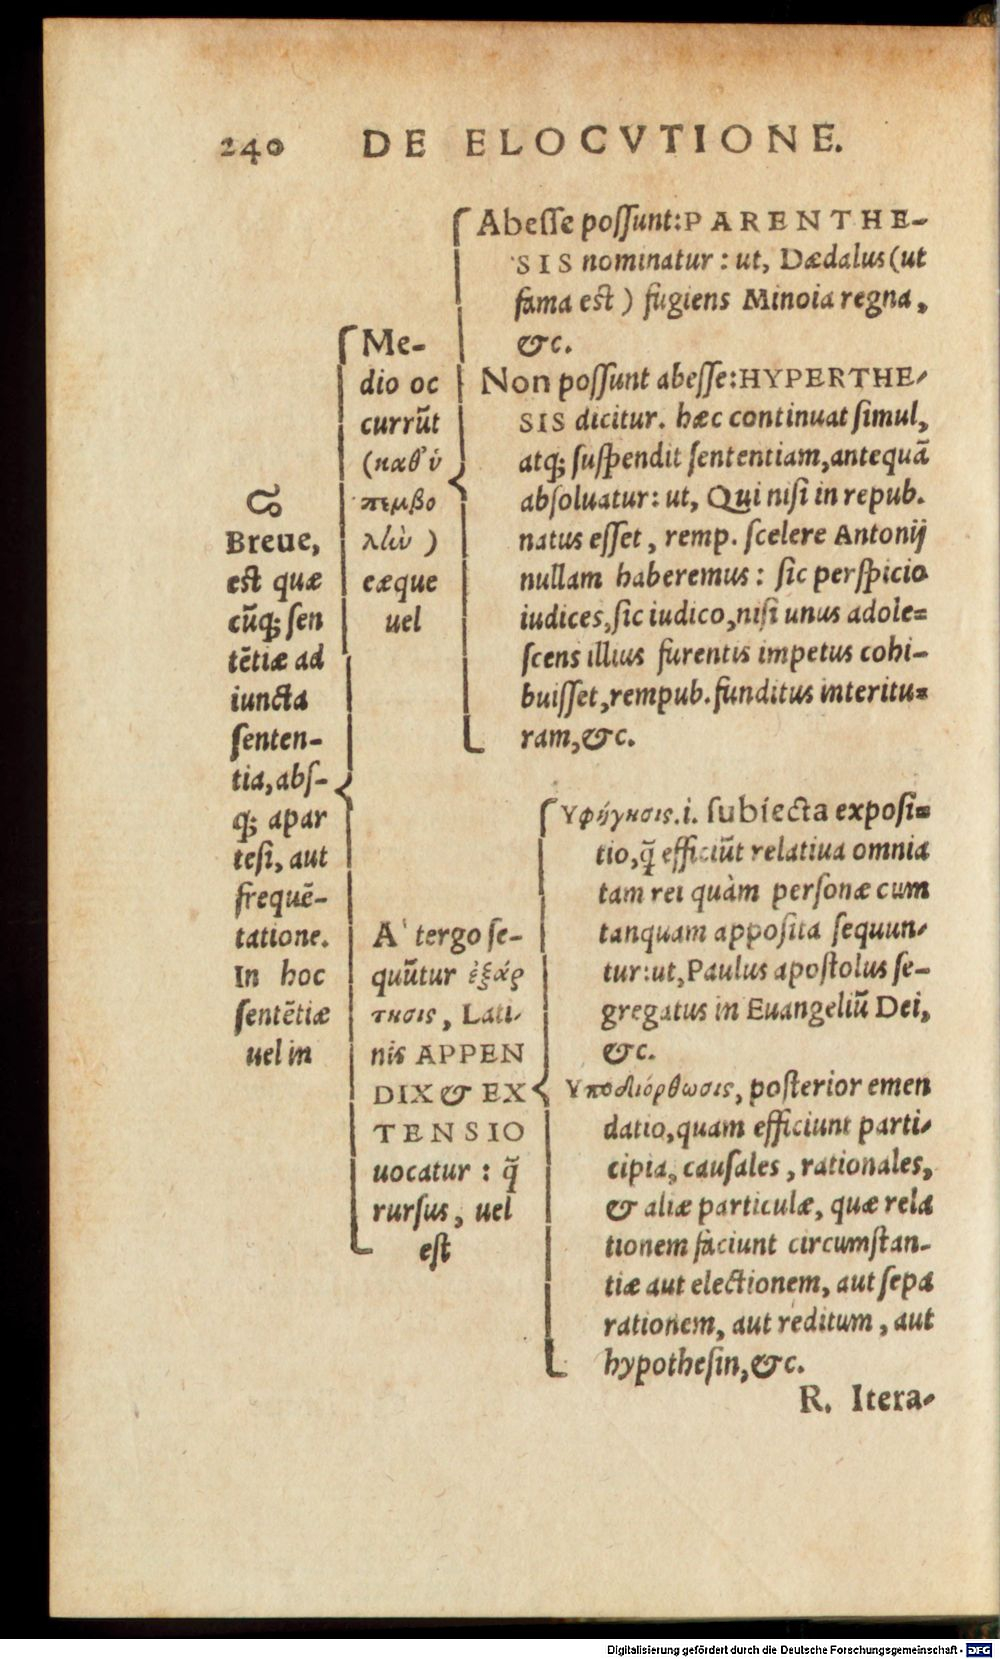 240 DE ELOCVTIONE.
ܢ
Breue,
est quæ
cũq; sen
tẽtiæ ad
iuncta
senten-
tia, abs-
q; apar
tesi, aut
frequẽ-
tatione.
In hoc
sentẽtiæ
uel in
Me-
dio oc
currũt
(καθ' ὑ
πεμβο
λὼ )
eæque
uel
Abesse possunt: PARENTHE-
SIS nominatur : ut, Dædalus (ut
fama est ) fugiens Minoia regna,
&c.
Non possunt abesse: HYPERTHE-
SIS dicitur. hæc continuat simul,
atq; suspendit sententiam, antequã
absoluatur: ut, Qui nisi in repub.
natus esset, remp. scelere Antonij
nullam haberemus : sic perspicio
iudices, sic iudico, nisi unus adole=
scens illius furentis impetus cohi-
buisset, rempub. funditus interitu=
ram, &c.
A' tergo se-
quũtur ἐξάρ
τησις, Lati-
nis APPEN
DIX & EX
TENSIO
uocatur : q̃
rursus, uel
est
Υφήγησις. i. subiecta exposi=
tio, q̃ efficiũt relatiua omnia
tam rei quàm personæ cum
tanquam apposita sequun-
tur: ut, Paulus apostolus se-
gregatus in Euangeliũ Dei,
&c.
Υποδιόρθωσις, posterior emen
datio, quam efficiunt parti-
cipia, causales, rationales,
& aliæ particulæ, quæ rela
tionem faciunt circumstan-
tiæ aut electionem, aut sepa
rationem, aut reditum, aut
hypothesin, &c.
R. Itera-
Digitalisierung gefördert durch die Deutsche Forschungsgemeinschaft - DFG